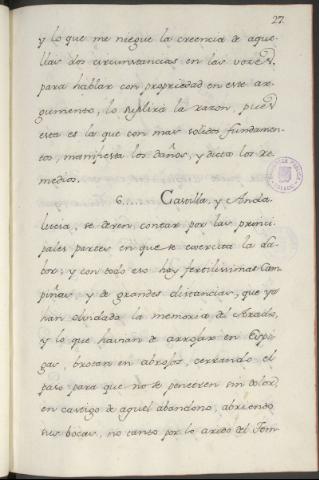 27.
y lo que me niegue la creencia de aque-
llas dos circunstancias en las voces,
para hablar con propriedad en este ar-
gumento, lo suplirá la razon, pues
esta es la que con mas solidos fundamen-
tos, manifiesta los daños, y dicta los re-
medios.
6. Castilla, y Anda-
lucia, se deven contar por las princi-
pales partes en que se exercita la la-
bor; y con todo eso hay fertilissimas Cam-
piñas, y de grandes distancias, que ya
han olvidado la memoria del Arado,
y lo que havian de arrojar en Espi-
gas, brotan en abrojos, cerrando el
paso para que no se penetren sin dolor,
en castigo de aquel abandono, abriendo
sus bocas, no tanto por lo arido del Tem-